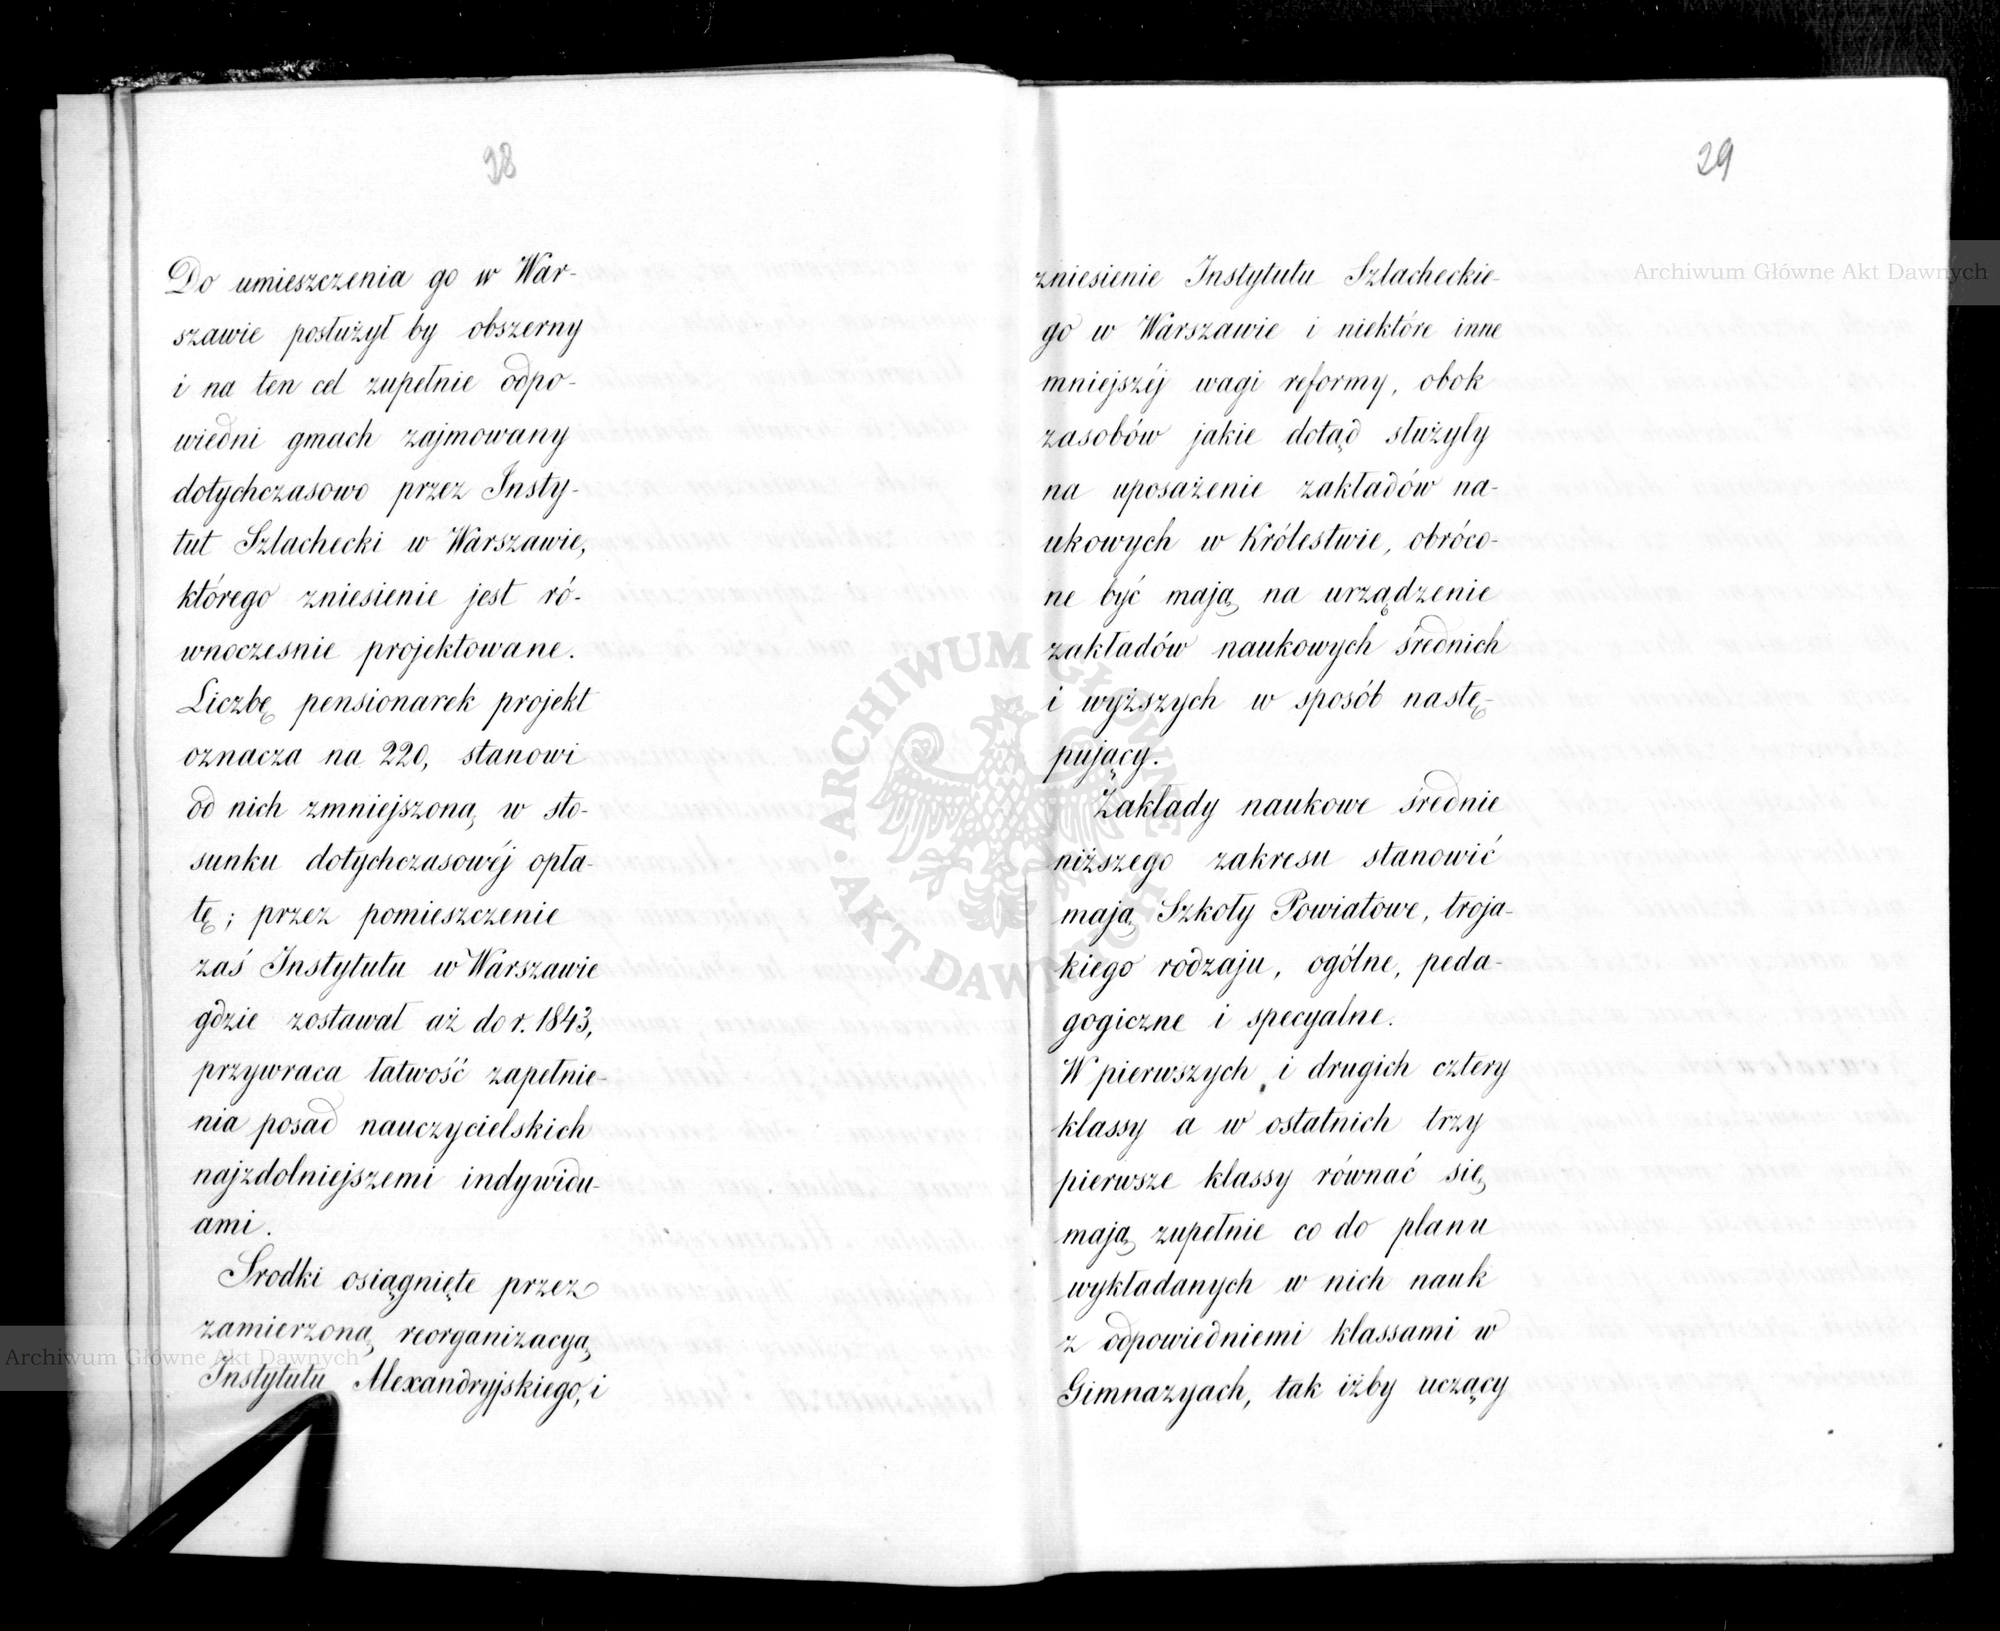 28
Do umieszczenia go w War-
szawie posłużył by obszerny
i na ten cel zupełnie odpo-
wiedni gmach zajmowany
dotychczasowo przez Insty-
tut Szlachecki w Warszawie,
którego zniesienie jest ró-
wnoczesnie projektowane.
Liczbę pensionarek projekt
oznacza na 220, stanowi
od nich zmniejszoną w sto-
sunku dotychczasowéj opła-
tę; przez pomieszczenie
zaś Instytutu w Warszawie
gdzie zostawał aż do r. 1843,
przywraca łatwość zapełnie-
nia posad nauczycielskich
najzdolniejszemi indywidu-
ami.
Srodki osiągnięte przez
zamierzoną reorganizacyą
Instytutu Alexandryjskiego, i
29
zniesienie Instytutu Szlacheckie-
go w Warszawie i niektóre inne
mniejszéj wagi reformy, obok
zasobów jakie dotąd służyły
na uposażenie zakładów na-
ukowych w Królestwie, obróco-
ne być mają na urządzenie
zakładów naukowych średnich
i wyższych w sposób nastę-
pujący.
Zakłady naukowe średnie
niższego zakresu stanowić
mają Szkoły Powiatowe, troja-
kiego rodzaju, ogólne, peda-
gogiczne i specyalne.
W pierwszych i drugich cztery
klassy a w ostatnich trzy
pierwsze klassy równać się
mają zupełnie co do planu
wykładanych w nich nauk
z odpowiedniemi klassami w
Gimnazyach, tak iżby uczący
Archiwum Główne Akt Dawnych
Archiwum Główne Akt Dawnych
ARCHIWUM GŁÓWNE AKT DAWNYCH